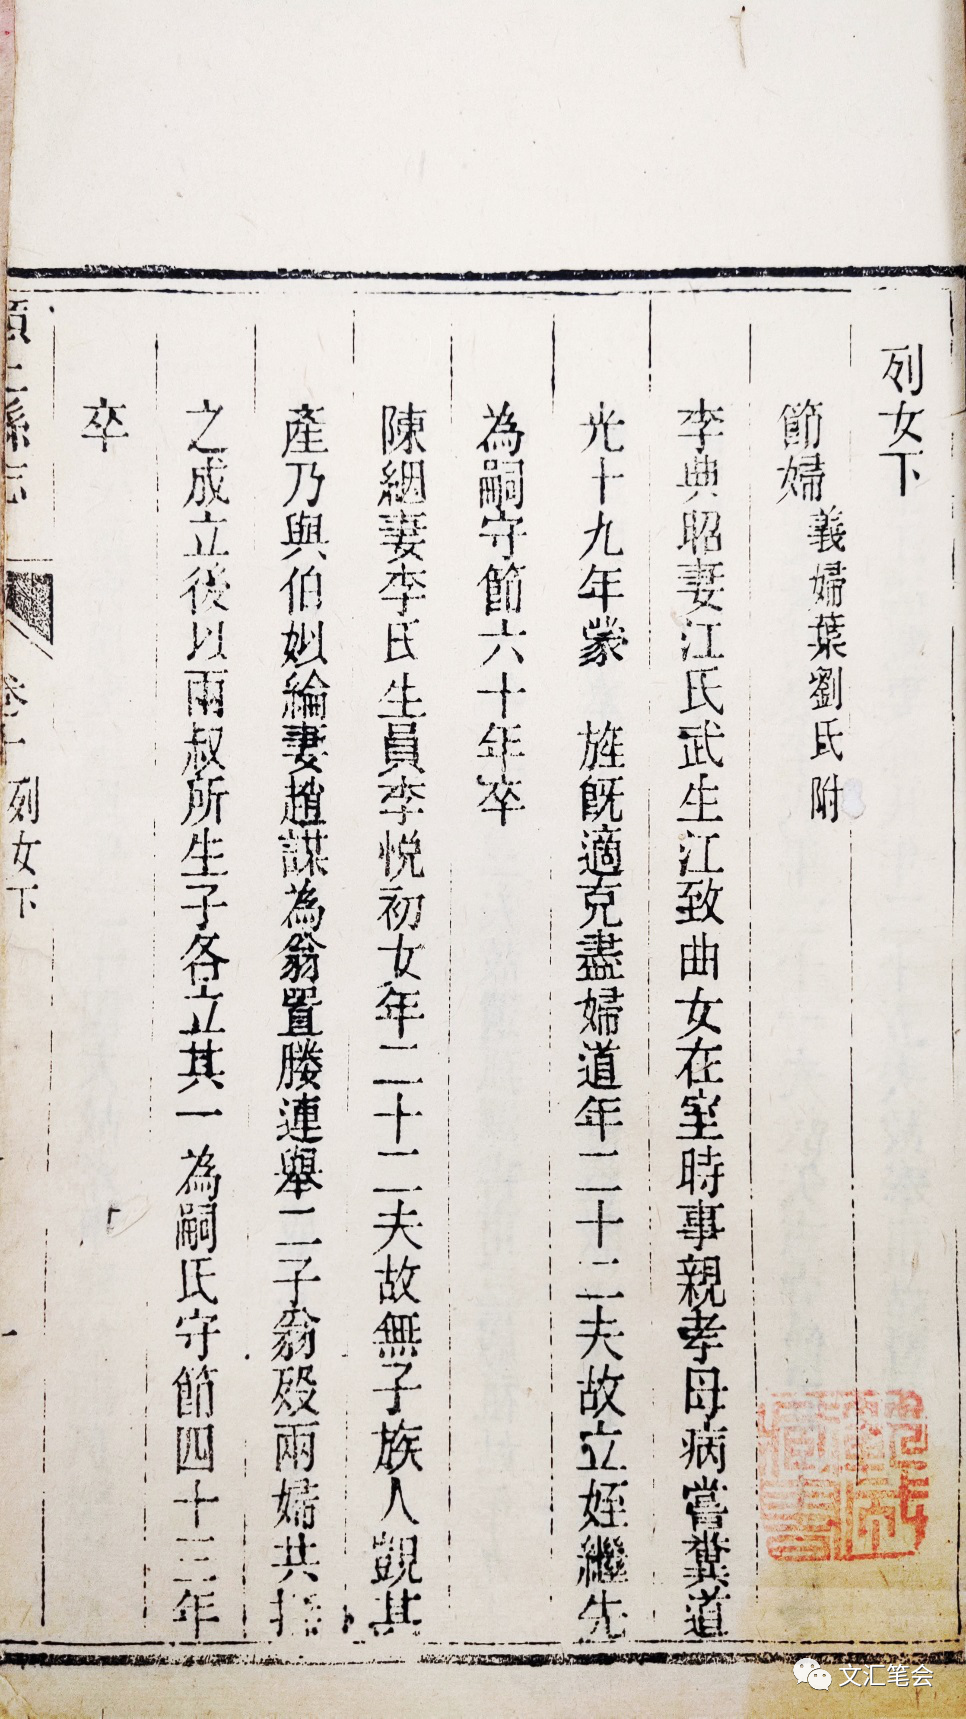 列女下
節婦 義婦葉劉氏附
李典昭妻江氏武生江致曲女在室時事親孝母病嘗糞道
光十九年蒙 旌旣適克盡婦道年二十二夫故立姪繼先
為嗣守節六十年卒
陳絪妻李氏生員李悅初女年二十二夫故無子族人覬其
產乃與伯姒綸妻趙謀為翁置媵連舉二子翁殁兩婦共
之成立後以兩叔所生子各立其一為嗣氏守節四十三年
卒
縣志 卷 列女下 一
藏書
文汇笔会